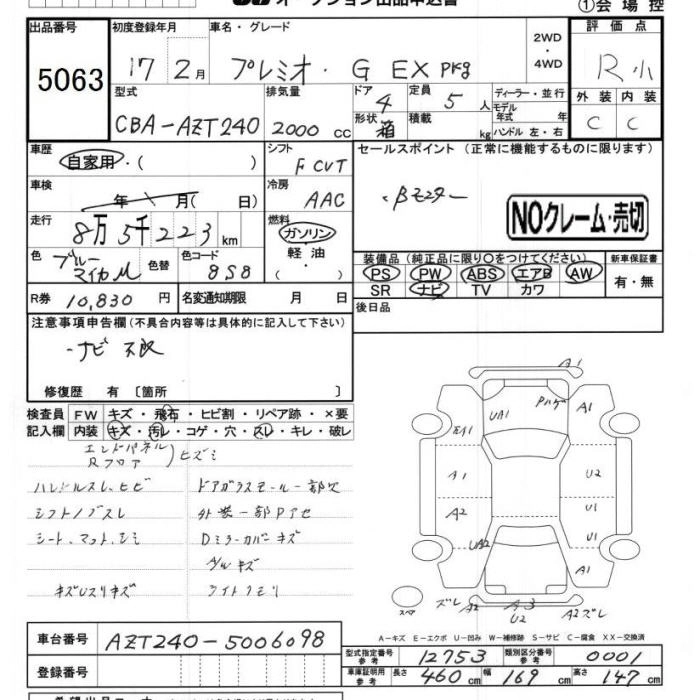 オークション出品申込書
①会場控
出品番号 初度登録年月 車名・グレード 2WD ・ 4WD 評価点
5063 17 2月 プレミオ・ G EX Pkg R小
型式 排気量 ドア 4 定員 5 人 ディーラー・並行 外装 内装
CBA-AZT240 2000 cc 形状 箱 積載 kg モデル年式 年 C C
ハンドル 左・右
車歴 シフト セールスポイント (正常に機能するものに限ります)
自家用・( ) F CVT
車検 冷房 ・Bモニター
年 月( 日) AAC NOクレーム・売切
走行 燃料
8万5千223km ガソリン
色 ブルーマイカM 色替 色コード 8S8 軽油・( )
装備品 (純正品に限り○をつけてください) 新車保証書
PS PW ABS エアB AW 有・無
SR ナビ TV カワ
R券 10,830 円 名変通知期限 月 日 後日品
注意事項申告欄 (不具合内容等は具体的に記入して下さい)
・ナビ不良
修復歴 有 〔箇所 〕
検査員 FW キズ・飛石・ヒビ割・リペア跡・×要
記入欄 内装 キズ・汚レ・コゲ・穴・スレ・キレ・破レ
エンドパネル
Rフロア )ヒズミ
ハンドルスレ、ヒビ ドアガラスモール一部欠
シフトノブスレ 外装一部Pアセ
シート、マット、シミ Dミラーカバーキズ
アルキズ
キズUスリキズ ライトクモリ
A1
UA1 Pハゲ A1
EA1
A1 U2
A2 U1
UA2 U1
A1
スペア ズレ A2 A3 U2 A2ズレ
A-キズ E-エクボ U-凹み W-補修跡 S-サビ C-腐食 XX-交換済
車台番号 AZT240-5006098
型式指定番号 参考 12753 類別区分番号 参考 0001
登録番号
車庫証明用 参考 長さ 460cm 幅 169cm 高さ 147cm